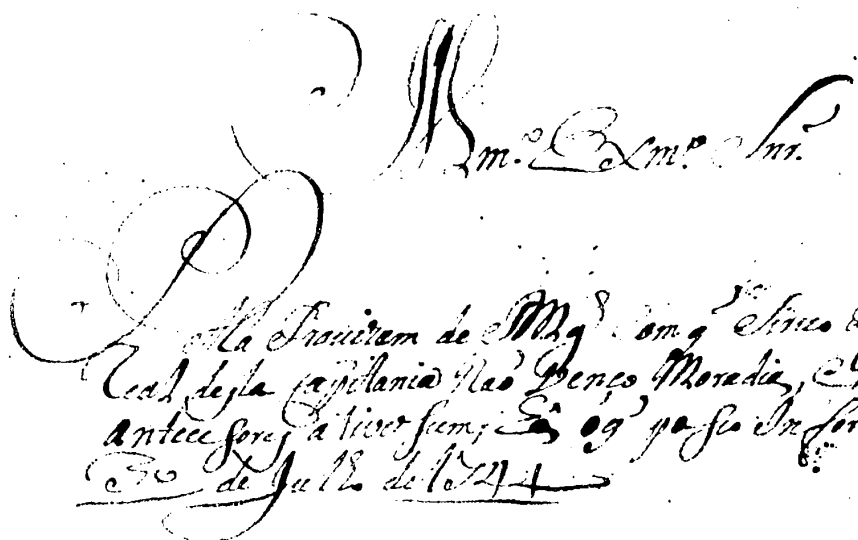 Illm.º Exm.º Snr.
Pella Provizam de S Mg.de com q' Sirvo
Real desta Capitania Naõ Venço Moradia,
antecesores a tivessem; He oq' posso Infor
30 de Julh.º de 1744